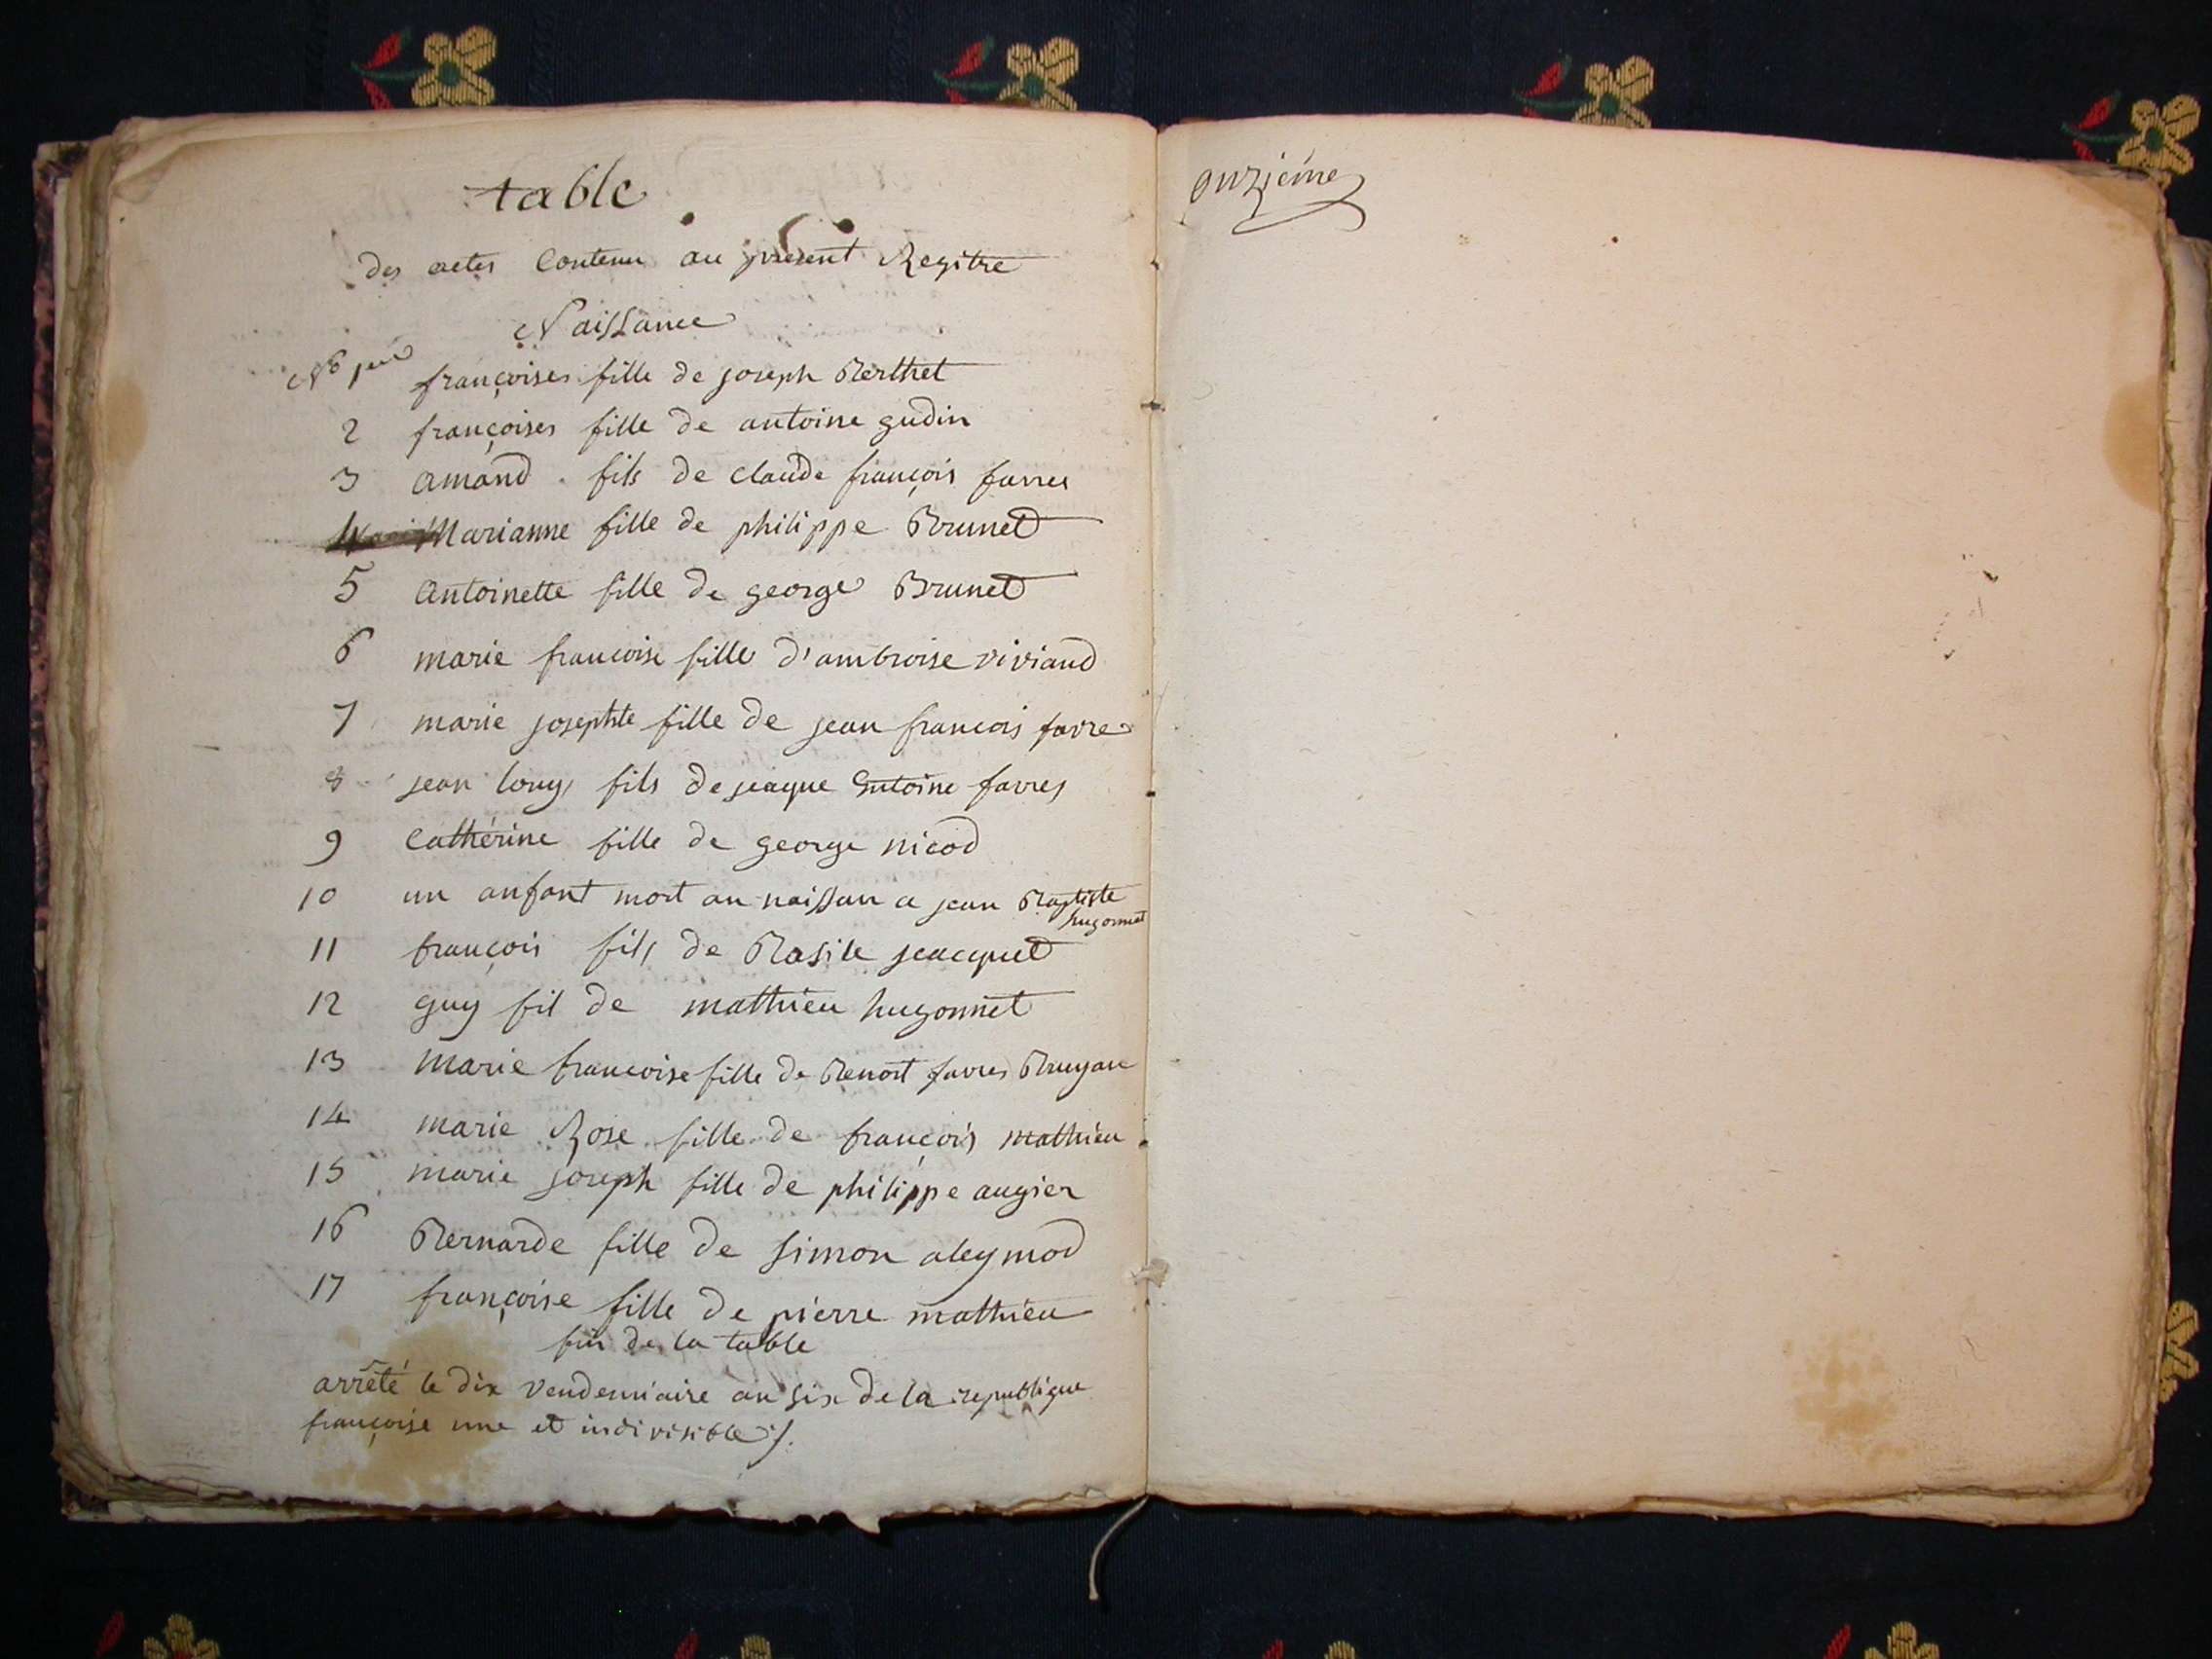 table
des actes Contenu au present Regitre
Naissance
No 1er françoises fille de joseph Berthet
2 françoises fille de antoine gudin
3 amand fils de claude françois favres
4 Marianne fille de philippe Brunet
5 Antoinette fille de george Brunet
6 marie francoise fille d'ambroise viviand
7 marie josephte fille de jean francois favre
8 jean louys fils de jeaque Entoine favres
9 Cathérine fille de george nicod
10 un anfant mort au naissan a jean Baptiste
hugonnet
11 françois fils de Basile jeacquet
12 guy fil de mathieu hugonnet
13 marie francoise fille de Benoit favres Bruyan
14 marie Rose fille de françois mathieu
15 marie joseph fille de philippe augier
16 Bernarde fille de simon aleymod
17 françoise fille de pierre mathieu
fin de la table
arrêté le dix vendemiaire an six de la republique
françoise une et indivisible ./.
onzième